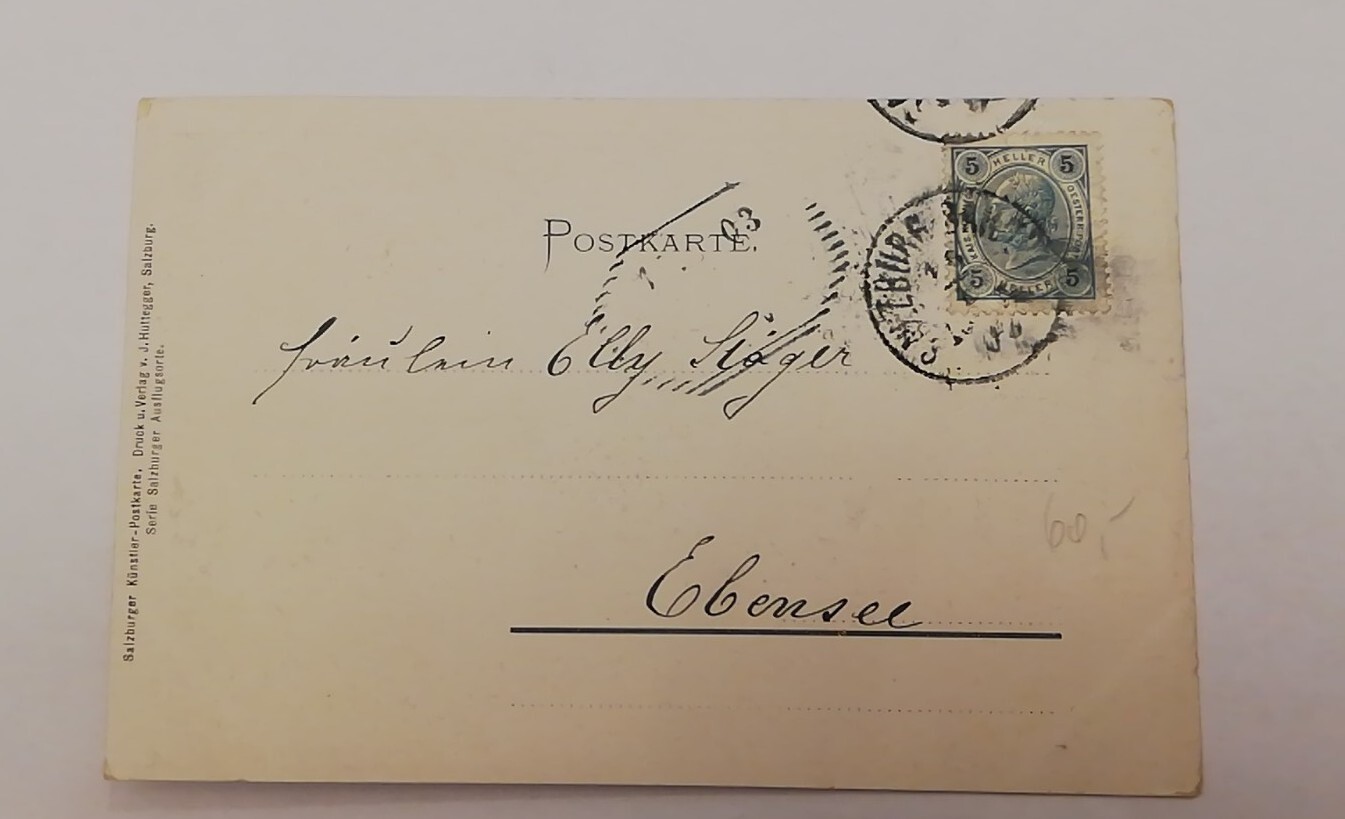 POSTKARTE.
03
5 HELLER 5
OESTERR. POST
5 HELLER 5
SALZBURG
Fräulein Elly Stöger
Ebensee
60,-
Salzburger Künstler-Postkarte. Druck u. Verlag v. J. Huttegger, Salzburg.
Serie Salzburger Ausflugsorte.